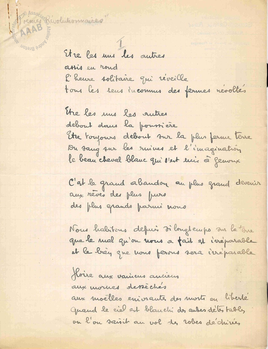 I
Etre les uns les autres
assis en rond
L'heure solitaire qui réveille
tous les sens inconnus des femmes révoltés
Etre les uns les autres
debout dans la poussière
Etre toujours debout sur la plus ferme terre
Du sang sur les ruines et l'imagination
le beau cheval blanc qui s'est mis à genoux
C'est le grand abandon au plus grand devenir
aux rêves des plus purs
des plus grands parmi nous
Nous habitons depuis si longtemps sur le
que le mal qu'on nous a fait est irréparable
et le bien que nous ferons sera irréparable
Gloire aux vaincus anciens
aux mornes desséchés
aux moelles enivrantes des morts en liberté
Quand le ciel est blanchi des astres détestables
où l'on savait au vol des robes déchirées